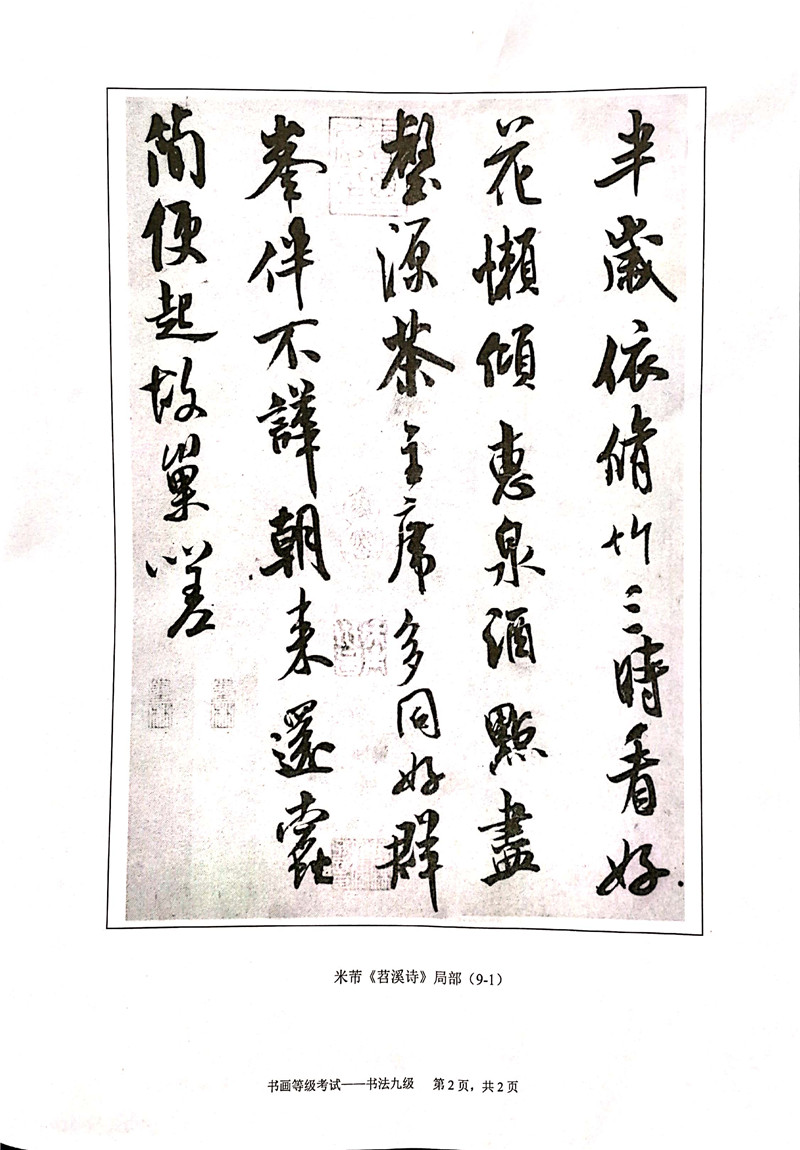 半歲依脩竹三時看好
花懶傾惠泉酒點盡
壑源茶主席多同好群
峯伴不譁朝來還蠹
簡便起故巢嗟
米芾《苕溪诗》局部（9-1）
书画等级考试——书法九级 第2页，共2页